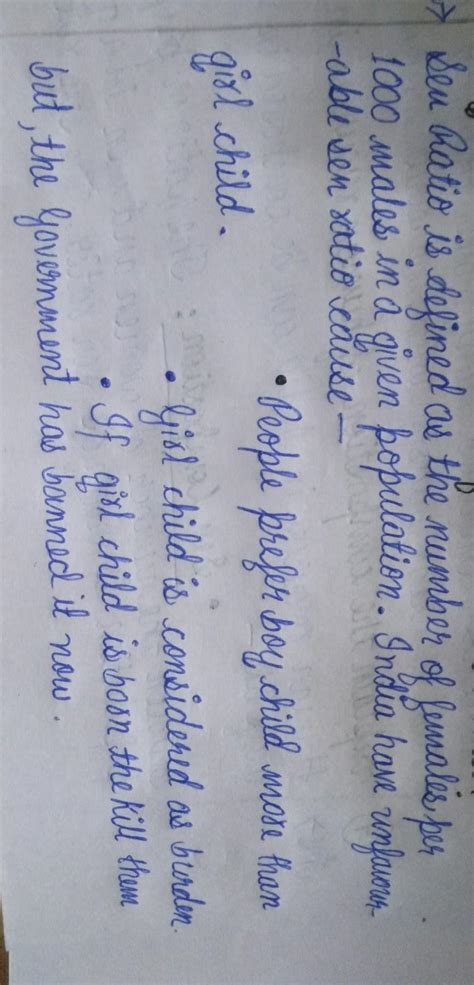 → Sex Ratio is defined as the number of females per
1000 males in a given population. India have unfavour
-able sex ratio cause —
• People prefer boy child more than
girl child.
• Girl child is considered as burden.
• If girl child is born the kill them
but, the Government has banned it now.